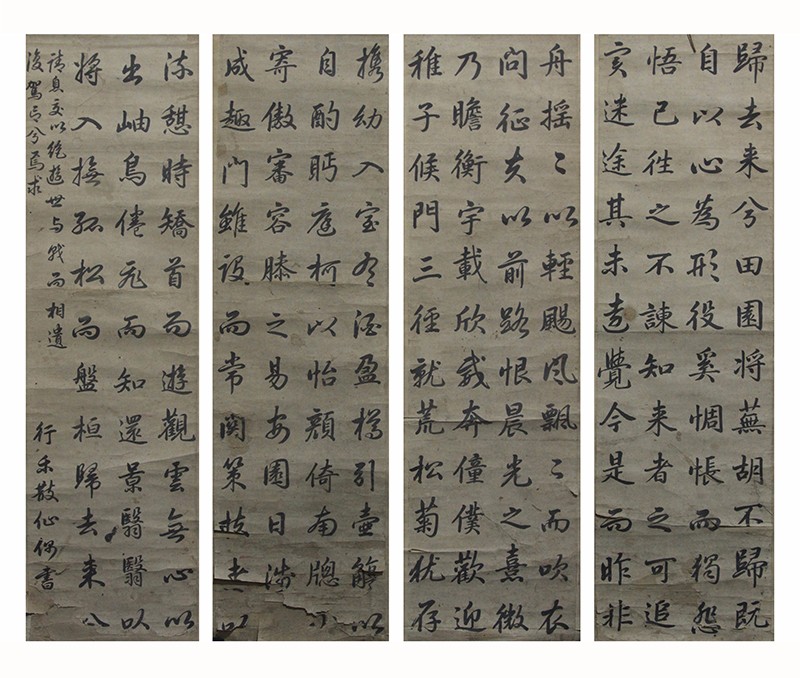 歸去来兮田園将蕪胡不歸既
自以心為形役奚惆悵而獨怨
悟已往之不諫知来者之可追
寔迷途其未遠覺今是而昨非
舟摇〻以輕颺風飄〻而吹衣
問征夫以前路恨晨光之熹微
乃瞻衡宇載欣載奔僮僕歡迎
稚子候門三徑就荒松菊犹存
携幼入室有酒盈樽引壺觴以
自酌眄庭柯以怡顔倚南牕以
寄傲審容膝之易安園日涉
成趣門雖設而常関策扶老以
流憩時矯首而遊觀雲無心以
出岫鳥倦飛而知還景翳翳以
将入撫孤松而盤桓歸去来兮
請息交以絶遊世与我而相遺
復駕言兮焉求
行乐散仙偶書